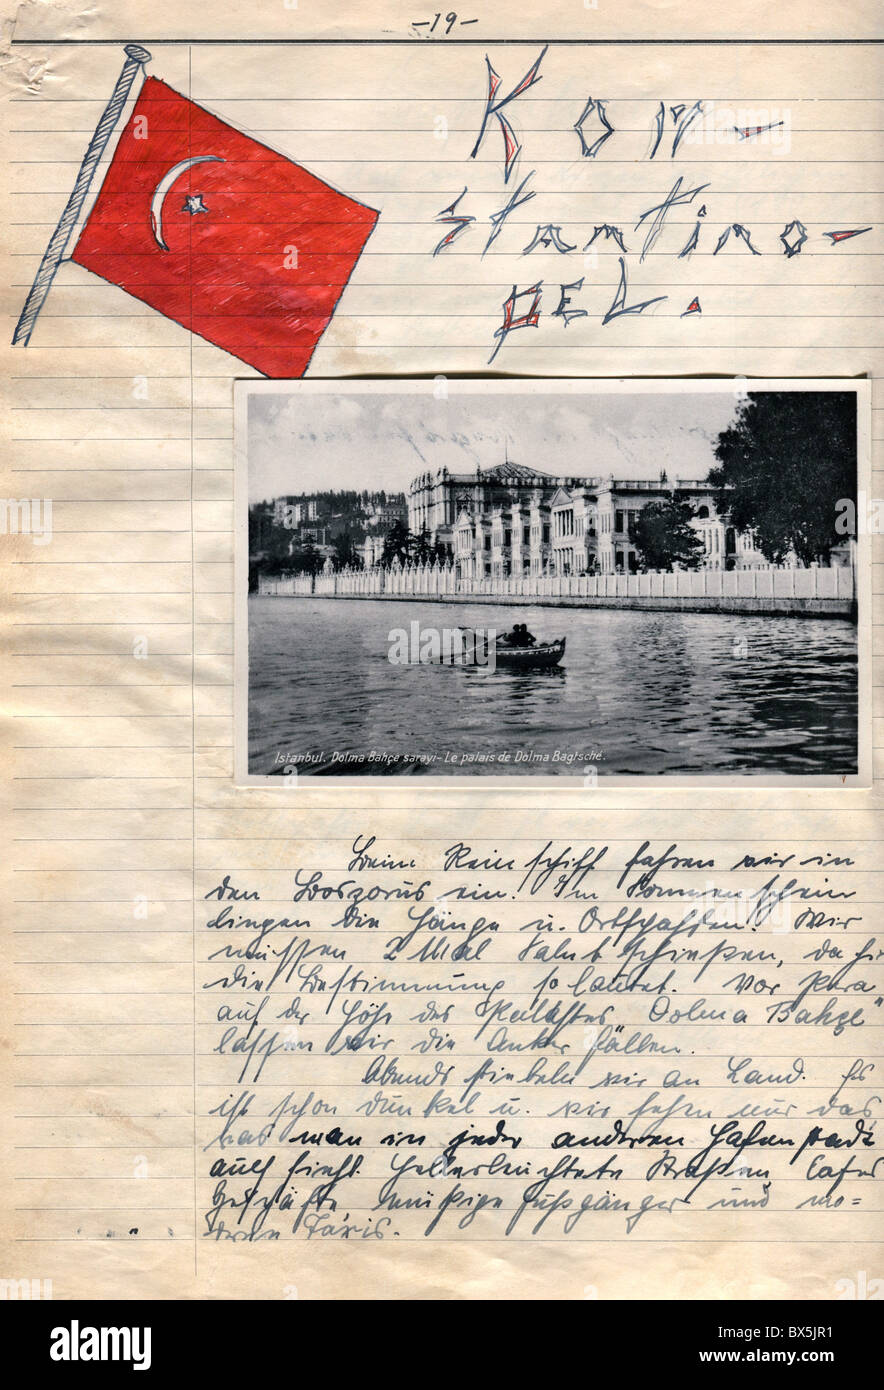 -19-
Kon-
stantino-
pel.
Istanbul. Dolma Bahçe sarayi - Le palais de Dolma Bagtsché.
Beim Reinschiff fahren wir in
den Bosporus ein. Im Sonnenschein
liegen die Hänge u. Ortschaften. Wir
müssen 2 Mal Salut schießen, da hier
die Bestimmung so lautet. Vor Pera
auf der Höhe des Palastes Dolma Bahçe"
lassen wir die Anker fallen.
Abends stiebeln wir an Land. Es
ist schon dunkel u. wir sehen nur das,
was man in jeder anderen Hafenstadt
auch sieht. Hellerleuchtete Straßen, Cafes
Geschäfte, müßige Fußgänger und mo=
derne Taxis.
alamy
Image ID: BX5JR1
www.alamy.com